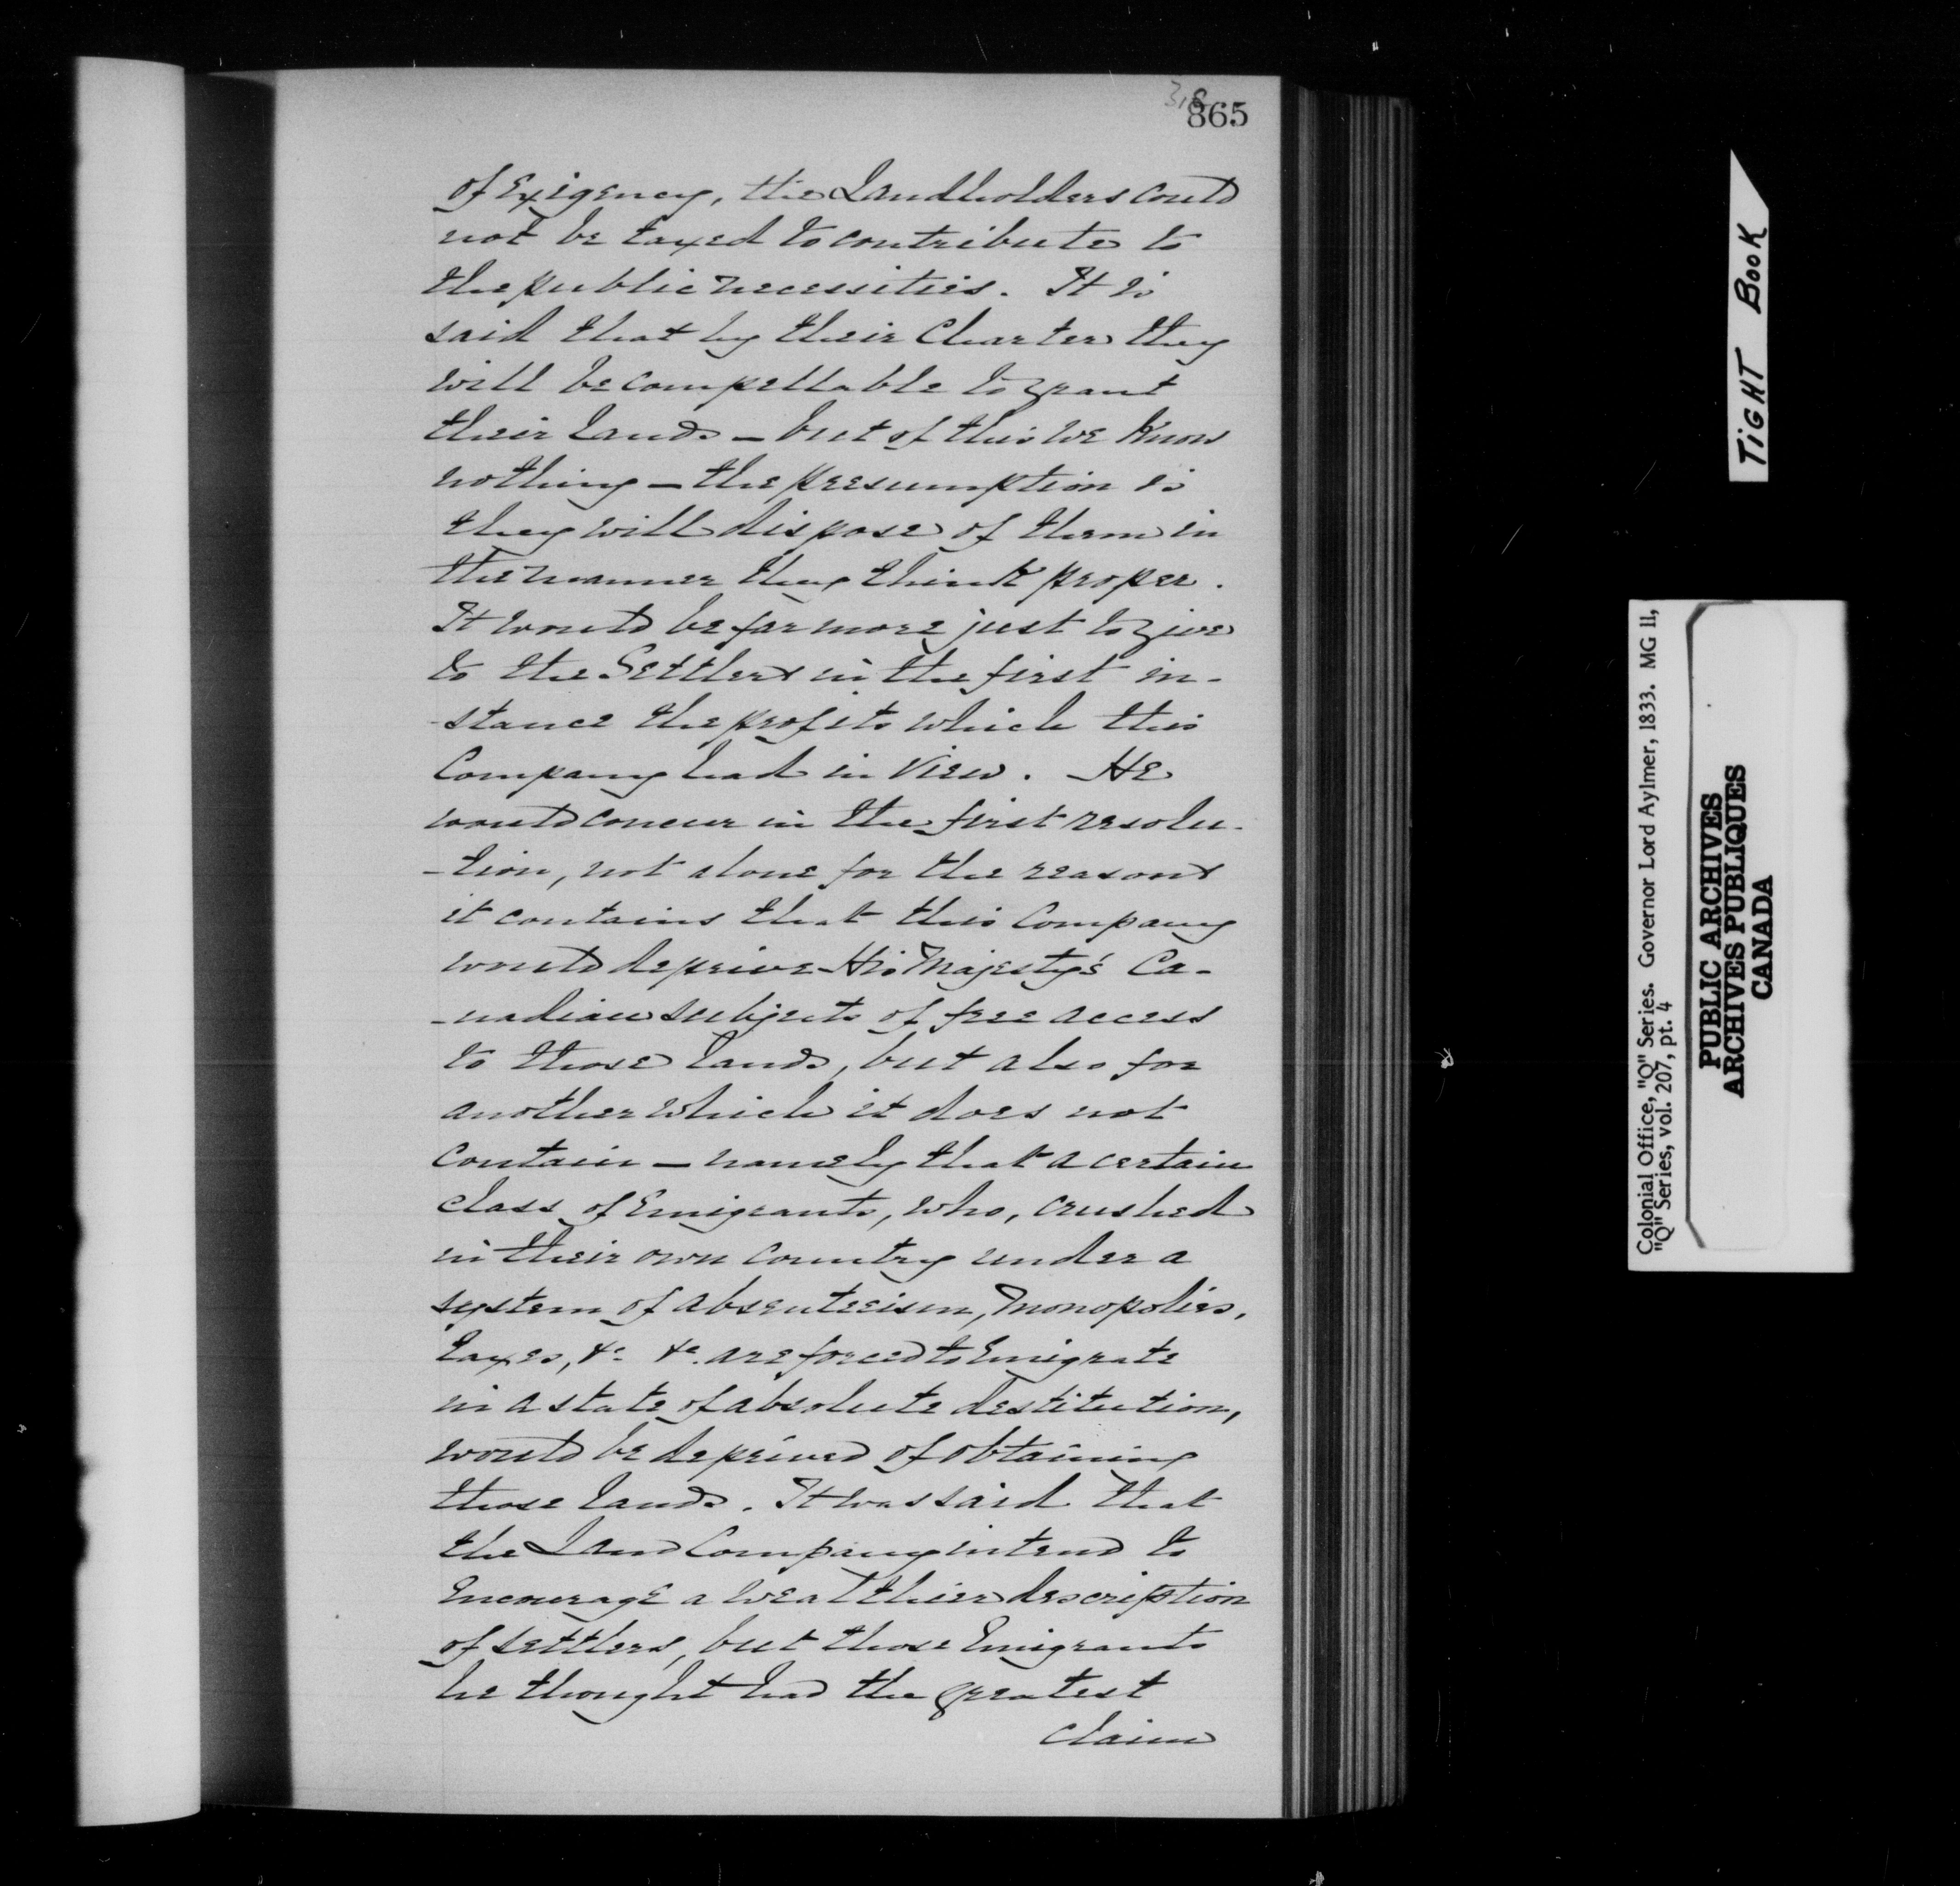 865
of Exigency, the Landholders could
not be taxed to contribute to
the public necessities. It is
said that by their Charter they
will be compellable to grant
their lands - but of this we know
nothing - the presumption is
they will dispose of them in
the manner they think proper.
It would be far more just to give
to the Settlers in the first in-
-stance the profits which this
Company had in view. He
would concur in the first resolu-
-tion, not alone for the reasons
it contains that this Company
would deprive His Majesty's Ca-
-nadian subjects of free access
to those lands, but also for
another which it does not
contain - namely that a certain
class of Emigrants, who, crushed
in their own Country under a
system of absenteeism, Monopolies,
taxes, &c. &c. are forced to Emigrate
in a state of absolute destitution,
would be deprived of obtaining
those lands. It was said that
the Land Company intend to
Encourage a wealthier description
of settlers, but those Emigrants
he thought had the greatest
claim
TIGHT BOOK
Colonial Office, "Q" Series. Governor Lord Aylmer, 1833. MG 11,
"Q" Series, vol. 207, pt. 4
PUBLIC ARCHIVES
ARCHIVES PUBLIQUES
CANADA